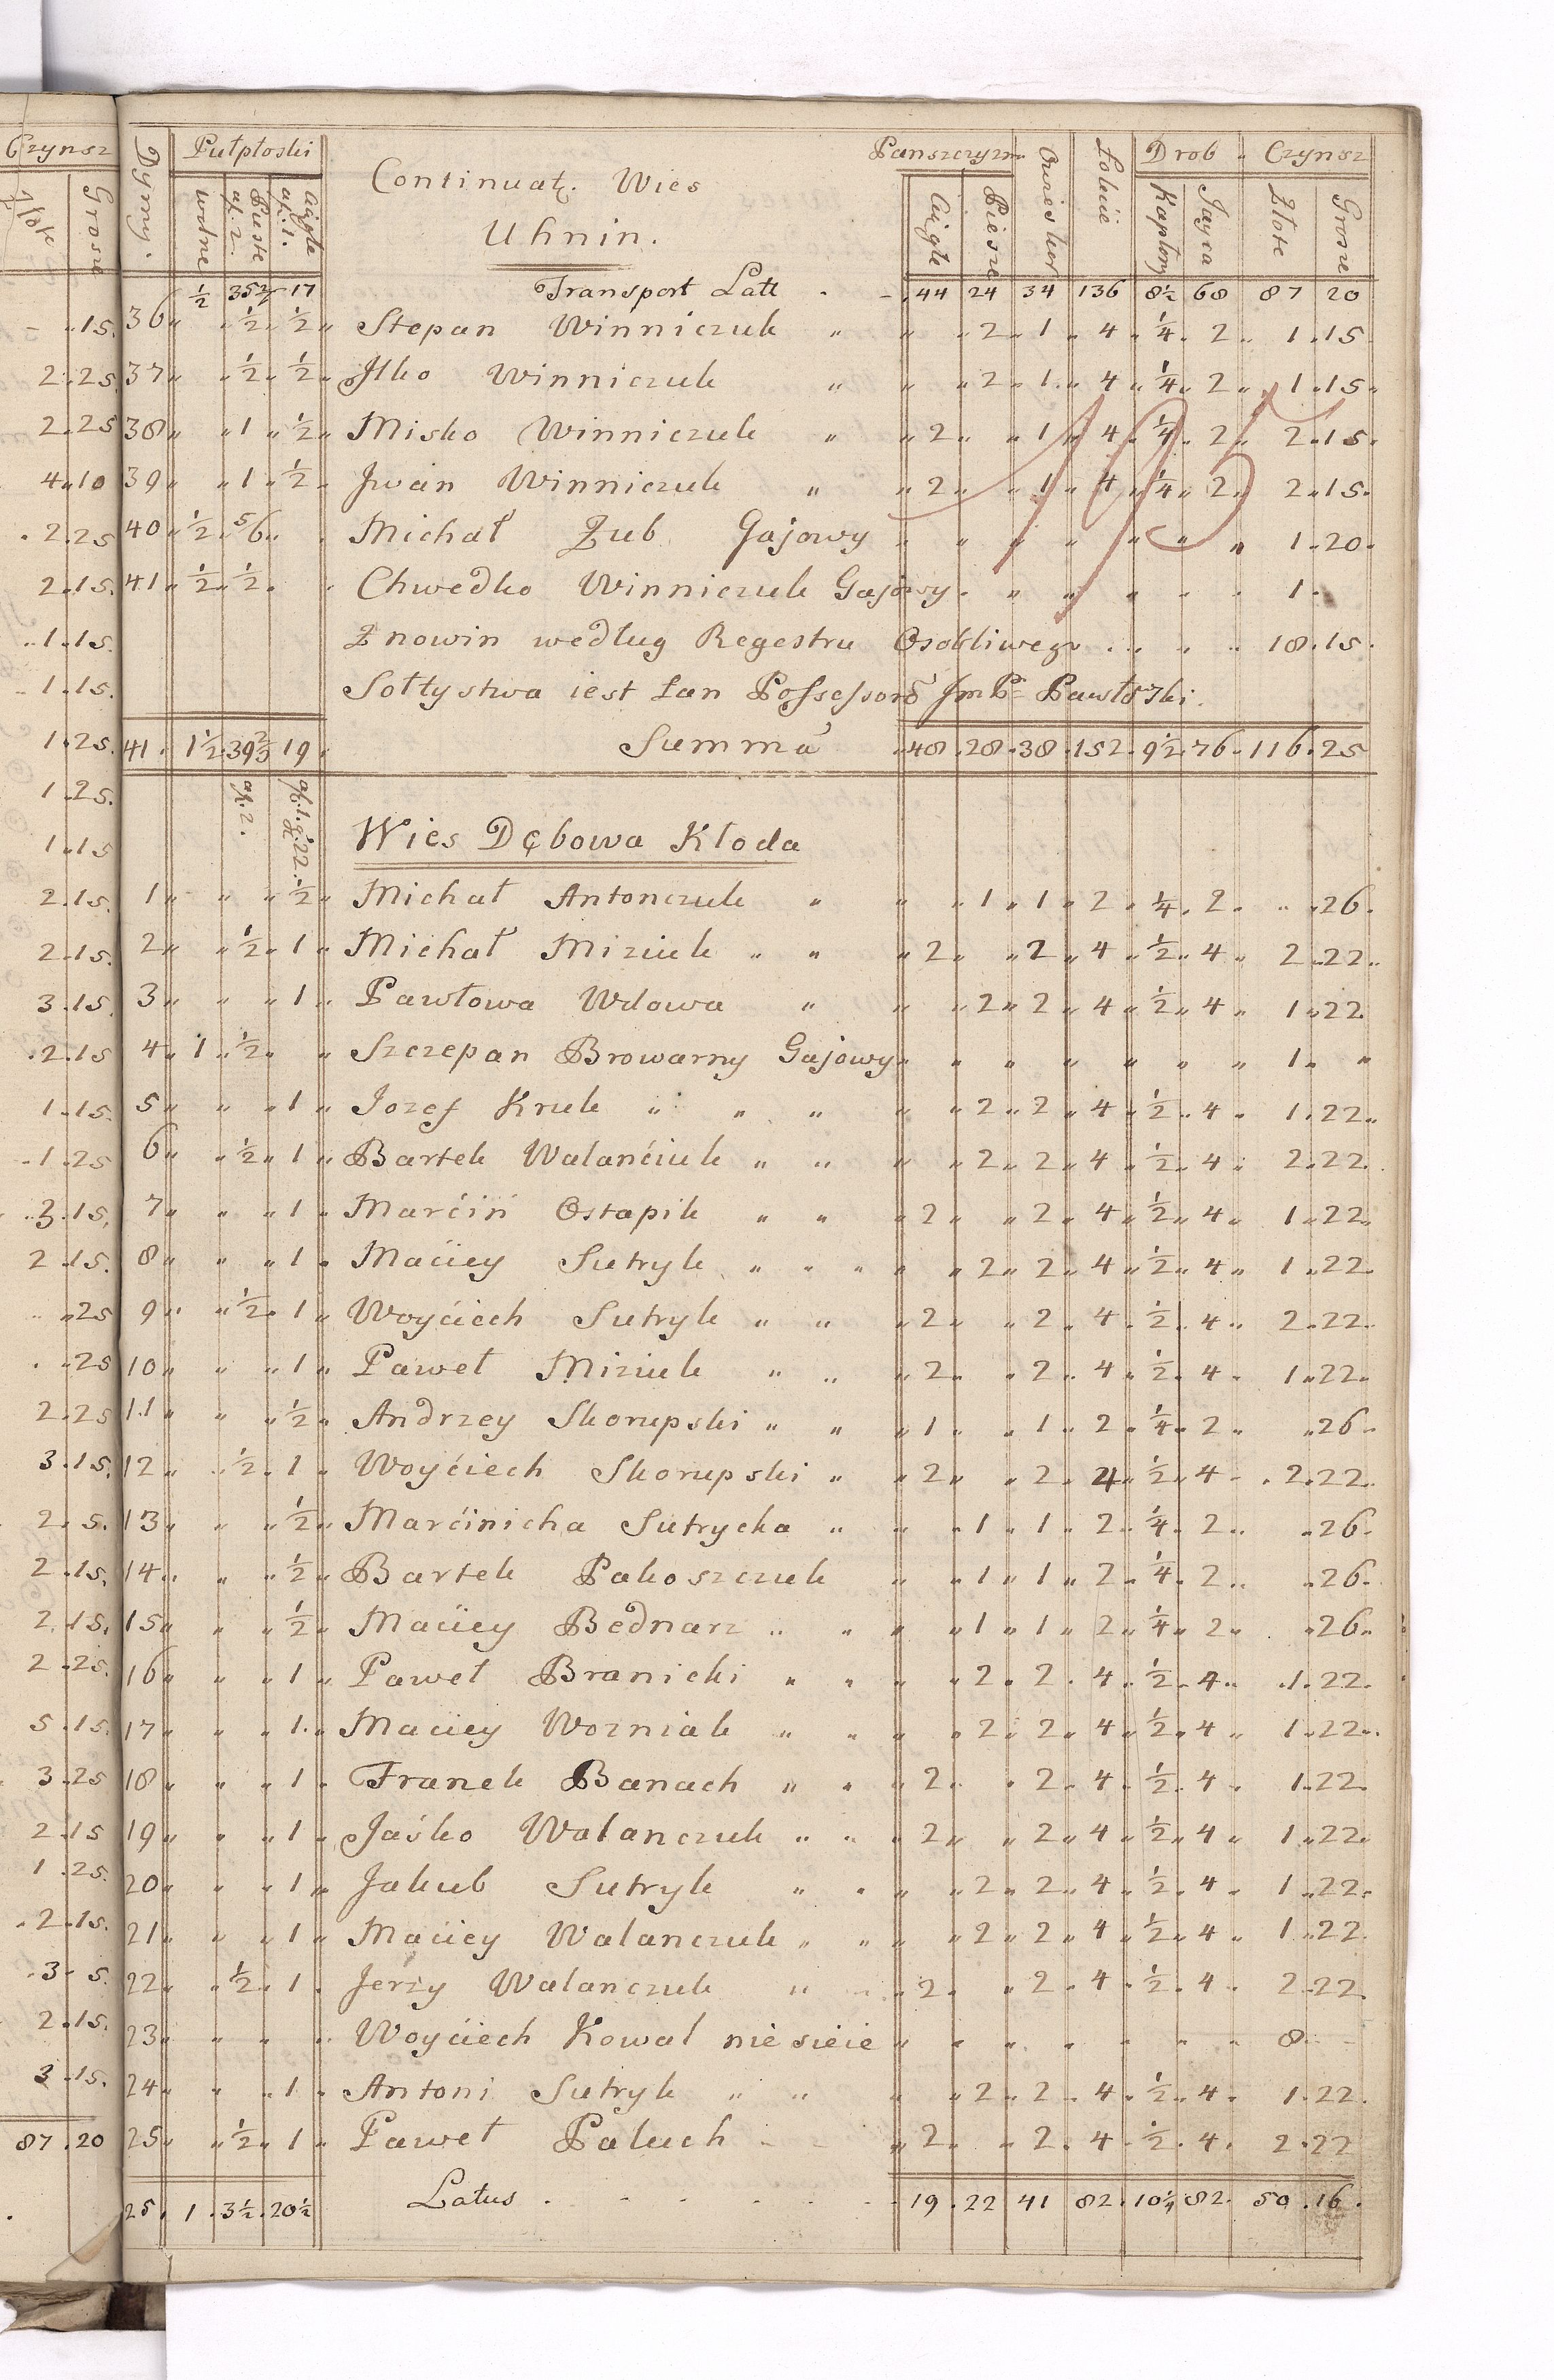 Czynsz
Złote Grosze
15.
2. 25
2. 25
4. 10
2. 25
2. 15.
1. 15.
1. 15.
1. 25.
1. 25.
1. 15
2. 15.
2. 15.
3. 15.
2. 15
1. 15.
1. 25
3. 15.
2. 15.
25
25
2. 25
3. 15.
2. 5.
2. 15.
2. 15.
2. 25.
5. 15.
3. 25
2. 15
1. 25.
2. 15.
3. 5.
2. 15.
3. 15.
87. 20
Dymy. Pułpłoski Continuat. Wies Panszczyzn Owies kor Łokcie Drob Czynsz
wolne Puste af. 2. Ciągłe af. 1. Uhnin. Ciągłe Piesze Kapłony Jayca Złote Grosze
1/2 35 2/3 17 Transport Latt 44 24 34 136 8 1/2 68 87 20
36 " " 1/2 1/2 Stepan Winniczuk " " 2 1 4 1/4 2 1. 15
37 " " 1/2 1/2 Jtko Winniczuk " " 2 1 4 1/4 2 1. 15
38 " " 1 1/2 Misko Winniczuk " 2 " 1 4 1/4 2 2. 15.
39 " " 1 1/2 Jwan Winniczuk " 2 " 1 4 1/4 2 2. 15.
40 1/2 5/6 Michał Zub Gajowy " " " " " " " 1. 20.
41 1/2 1/2 Chwedko Winniczuk Gajowy " " " " " " 1.
195
Z nowin według Regestru Osobliwego 18. 15.
Sołtystwa iest Łan Possessorō Jm P. Pawłōzki.
41. 1 1/2. 39 2/3 19 Summa 48. 28. 38. 152. 9 1/2. 76. 116. 25
af. 2. af. 1. g. 22.
Wies Dębowa Kłoda
1 " " " 1/2 Michał Antonczuk " " 1 1 2 1/4 2 " 26.
2 " " 1/2 1 Michał Miziuk " " 2 " 2 4 1/2 4 2. 22.
3 " " " 1 Pawłowa Wdowa " " 2 2 4 1/2 4 1. 22.
4 1 1/2 " Szczepan Browarny Gajowy " " " " " " 1. "
5 " " " 1 Jozef Kruk " " " " 2 2 4 1/2 4 1. 22.
6 " " 1/2 1 Bartek Walanćiuk " " " 2 2 4 1/2 4 2. 22.
7 " " " 1 Marćin Ostapik " " 2 " 2 4 1/2 4 1. 22.
8 " " " 1 Maciey Sutryk " " " " 2 2 4 1/2 4 1. 22.
9 " " 1/2 1 Woyćiech Sutryk " " 2 " 2 4 1/2 4 2. 22.
10 " " " 1 Paweł Miziuk " " 2 " 2 4 1/2 4 1. 22.
11 " " " 1/2 Andrzey Skorupski " " 1 " 1 2 1/4 2 " 26.
12 " " 1/2 1 Woyćiech Skorupski " 2 " 2 4 1/2 4 2. 22.
13 " " " 1/2 Marćinicha Sutrycka " " 1 1 2 1/4 2 " 26.
14 " " " 1/2 Bartek Pakoszczuk " 1 1 2 1/4 2 " 26.
15 " " " 1/2 Maciey Bednarz " " " 1 1 2 1/4 2 " 26.
16 " " " 1 Paweł Branicki " " " 2 2 4 1/2 4 1. 22.
17 " " " 1 Maciey Wozniak " " " 2 2 4 1/2 4 1. 22.
18 " " " 1 Franek Banach " " 2 " 2 4 1/2 4 1. 22.
19 " " " 1 Jaśko Walanczuk " " 2 " 2 4 1/2 4 1. 22.
20 " " " 1 Jakub Sutryk " " " 2 2 4 1/2 4 1. 22.
21 " " " 1 Maciey Walanczuk " " " 2 2 4 1/2 4 1. 22.
22 " " 1/2 1 Jerzy Walanczuk " 2 " 2 4 1/2 4 2. 22.
23 " " " " Woyćiech Kowal nie sieie " " " " " " " 8.
24 " " " 1 Antoni Sutryk " " " 2 2 4 1/2 4 1. 22.
25 " " 1/2 1 Paweł Paluch 2 " 2 4 1/2 4 2. 22
25. 1. 3 1/2. 20 1/2 Latus 19. 22 41 82. 10 1/4 82. 50. 16.